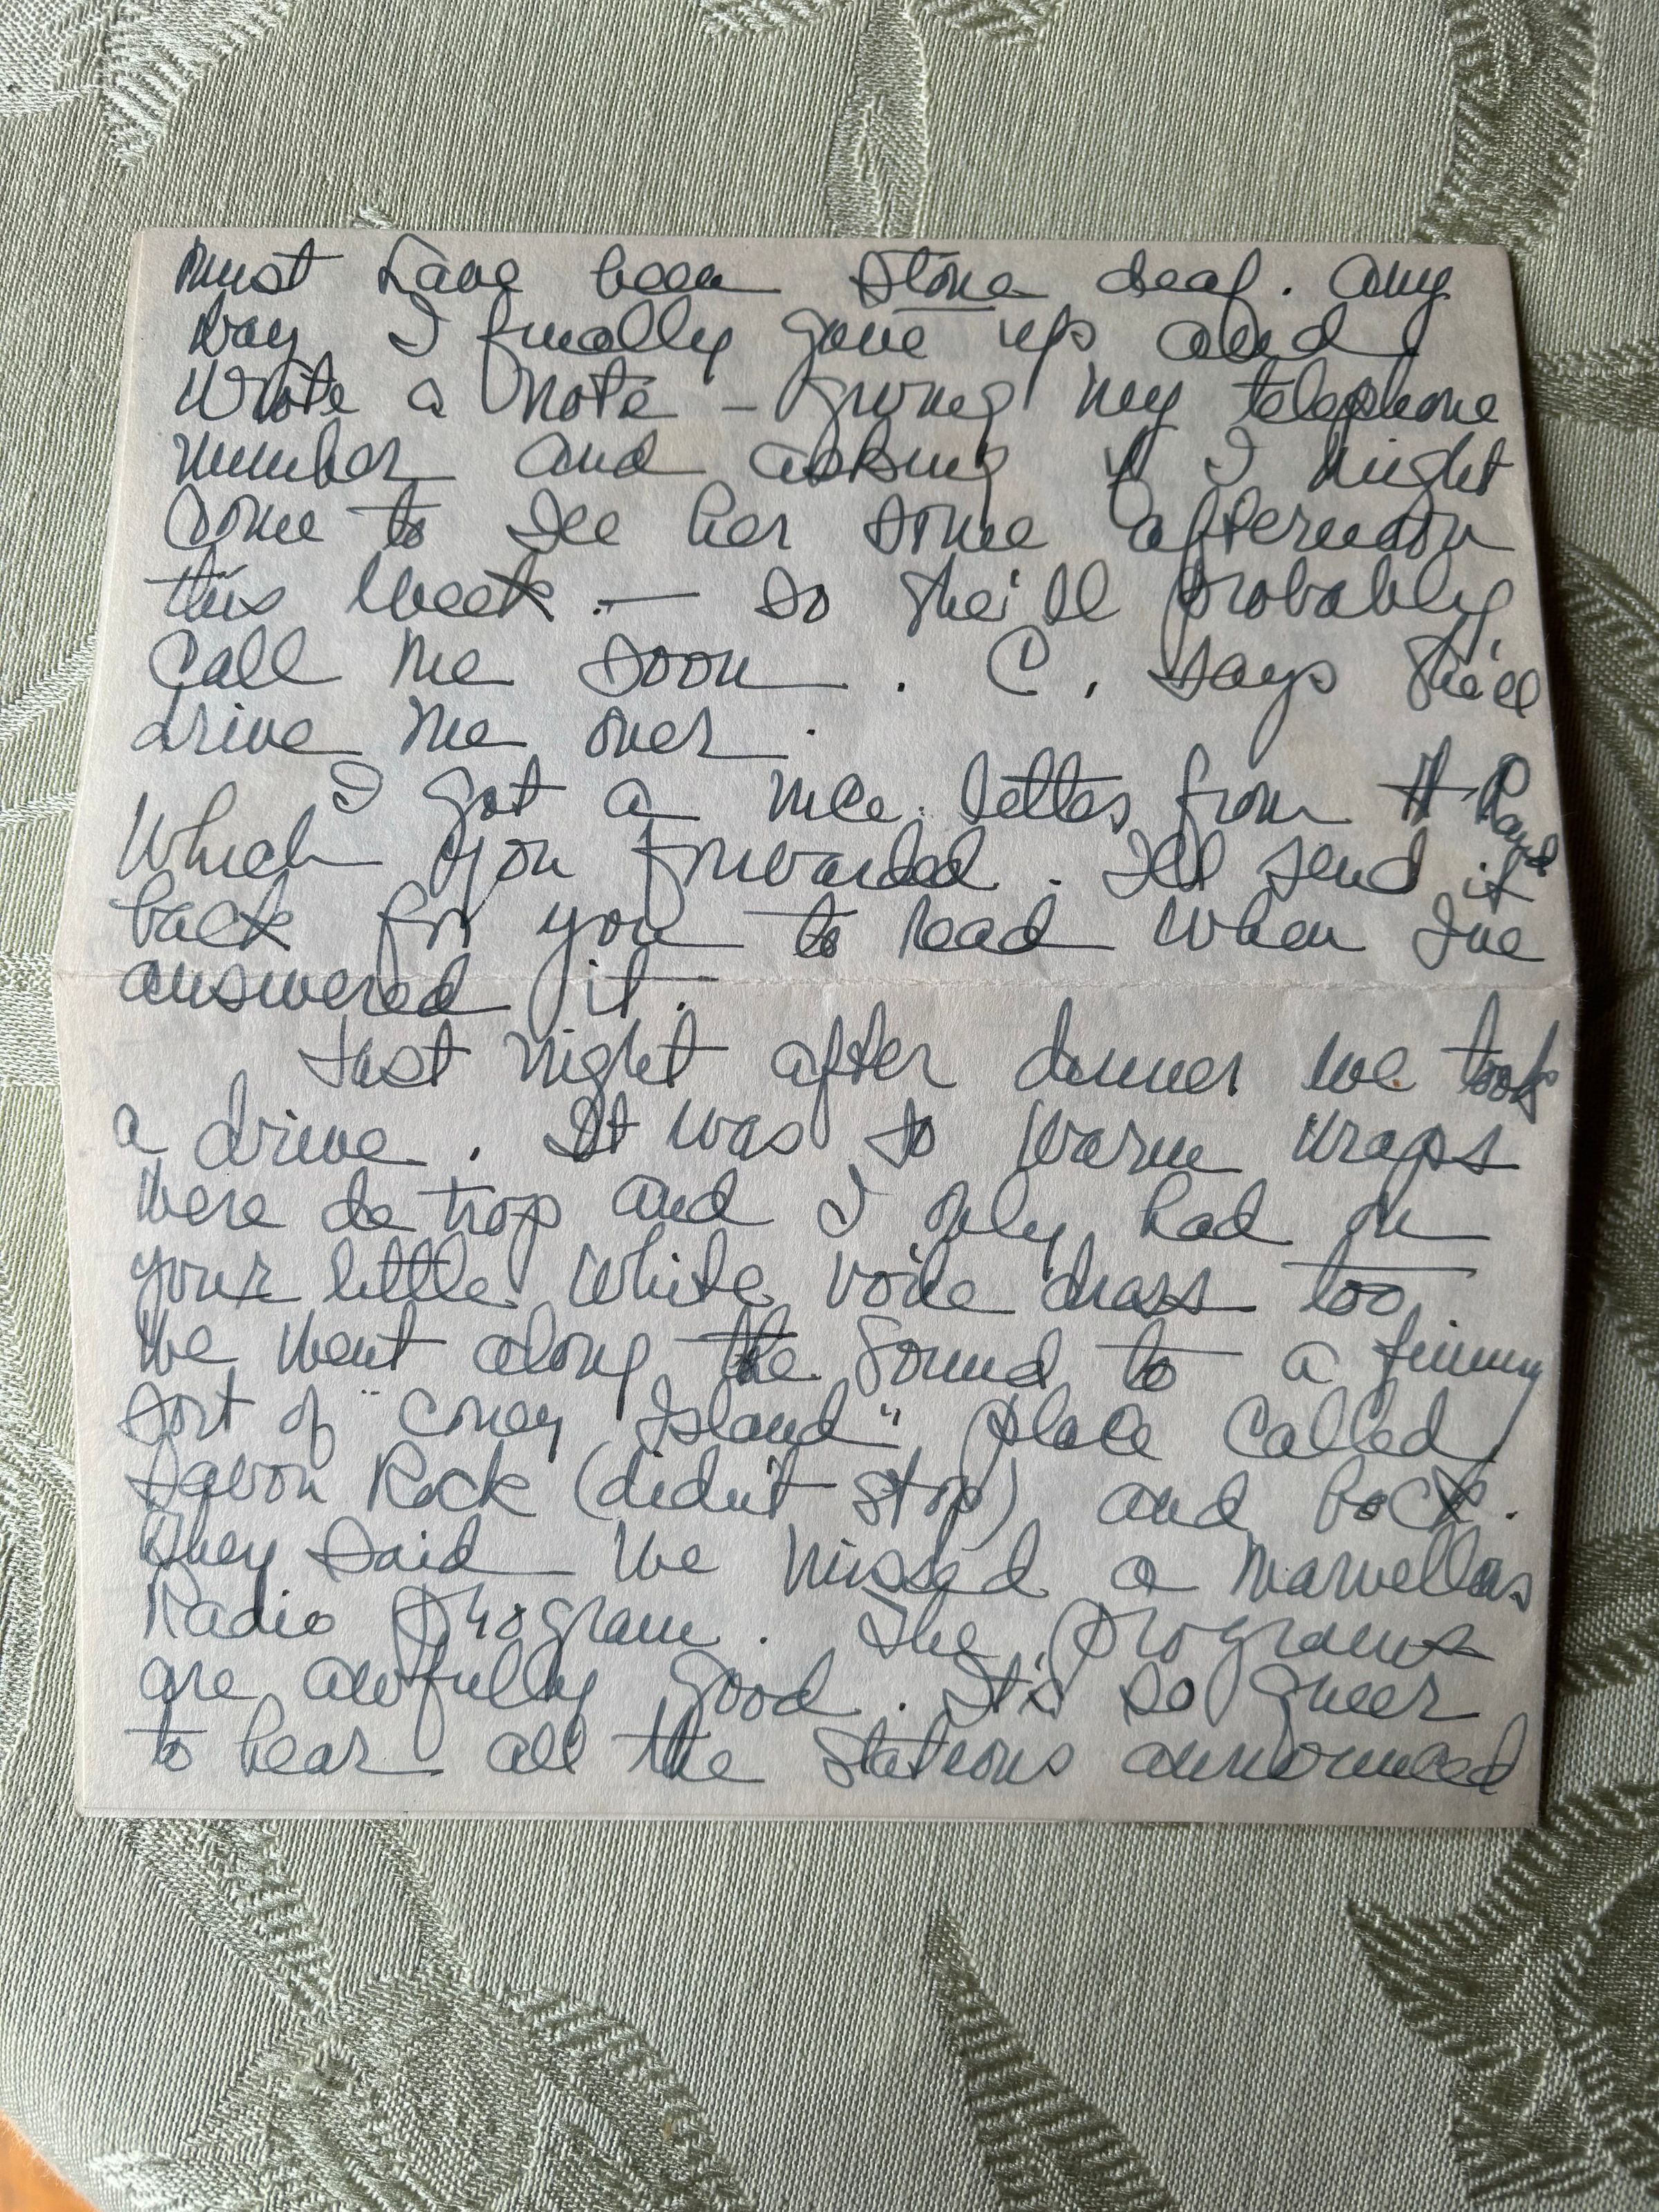 must have been stone deaf. Any
way I finally gave up and
wrote a note - giving my telephone
number and asking if I might
come to see her some afternoon
this week. — So she'll probably
call me soon. C. says she'll
drive me over.
I got a nice letter from H. Rand
which you forwarded. I'll send it
back for you to read when I've
answered it.
Last night after dinner we took
a drive. It was so warm wraps
were de trop and I only had on
your little white voile dress too.
We went along the Sound to a funny
sort of "Coney Island" place called
Savon Rock (didn't stop) and back.
They said we missed a marvellous
Radio program. The programs
are awfully good. It's so queer
to hear all the stations announced